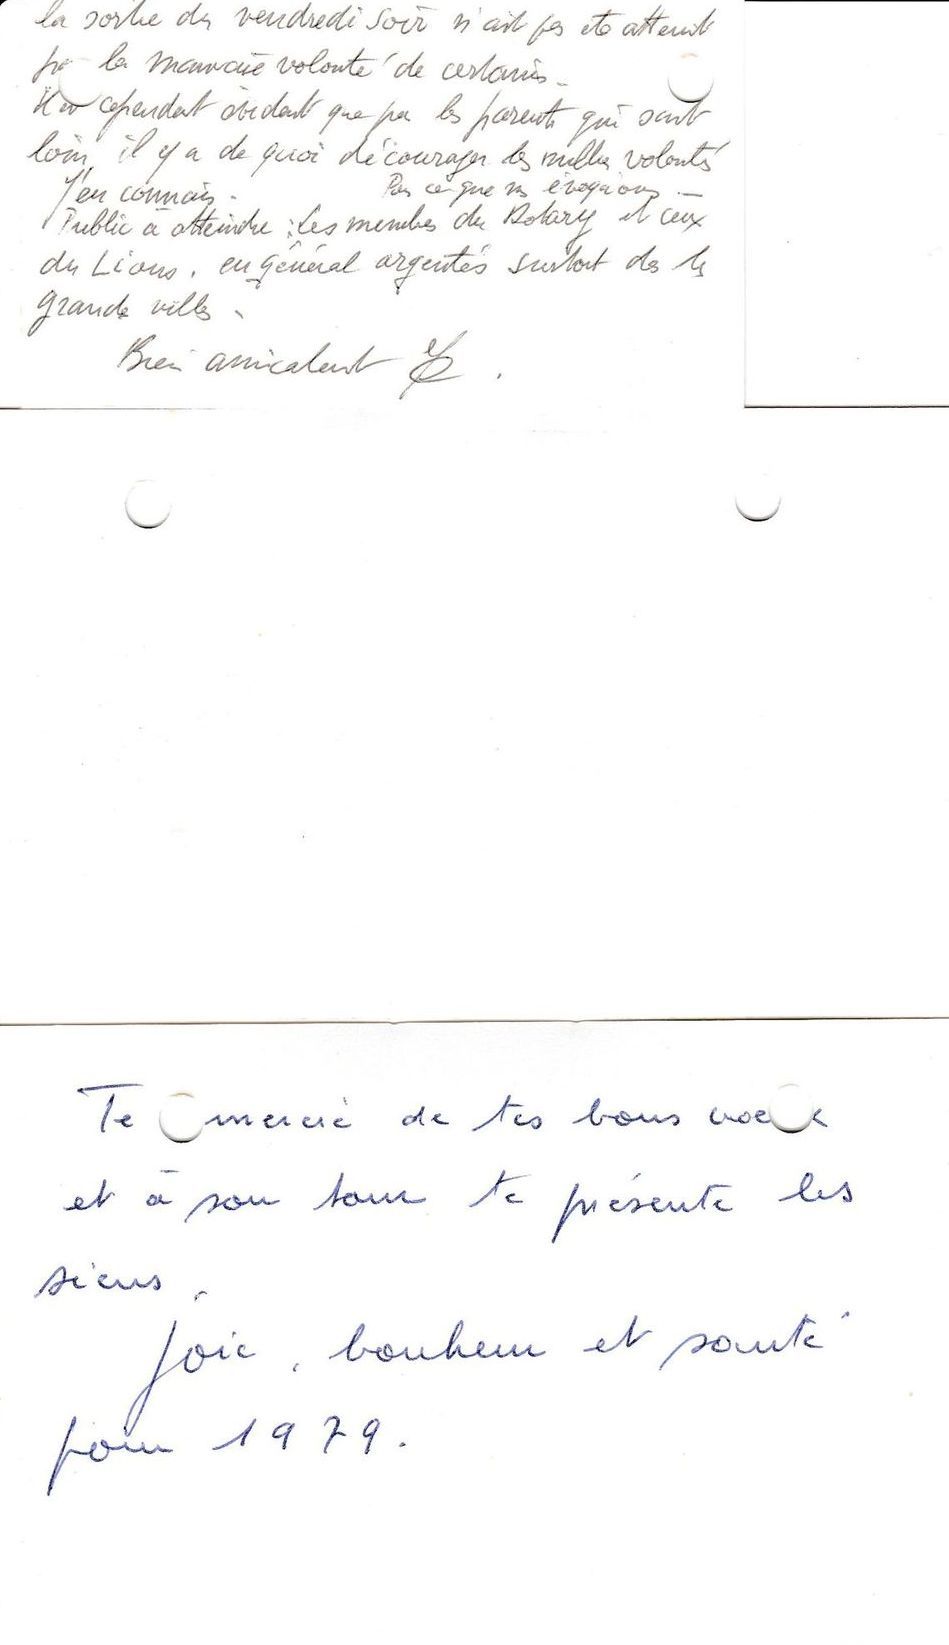 la sortie du vendredi soir n'ait pas été atteint
par la mauvaise volonté de certains.
Il est cependant évident que par les parents qui sont
loin, il y a de quoi décourager les meilles volontés
J'en connais. Pas ce que ns évoquions —
Public à atteindre : Les membres du Rotary et ceux
du Lions, en général argentés surtout ds les
grandes villes.
Bien amicalement
Te remercie de tes bons voeux
et à son tour te présente les
siens.
Joie, bonheur et santé
pour 1979.